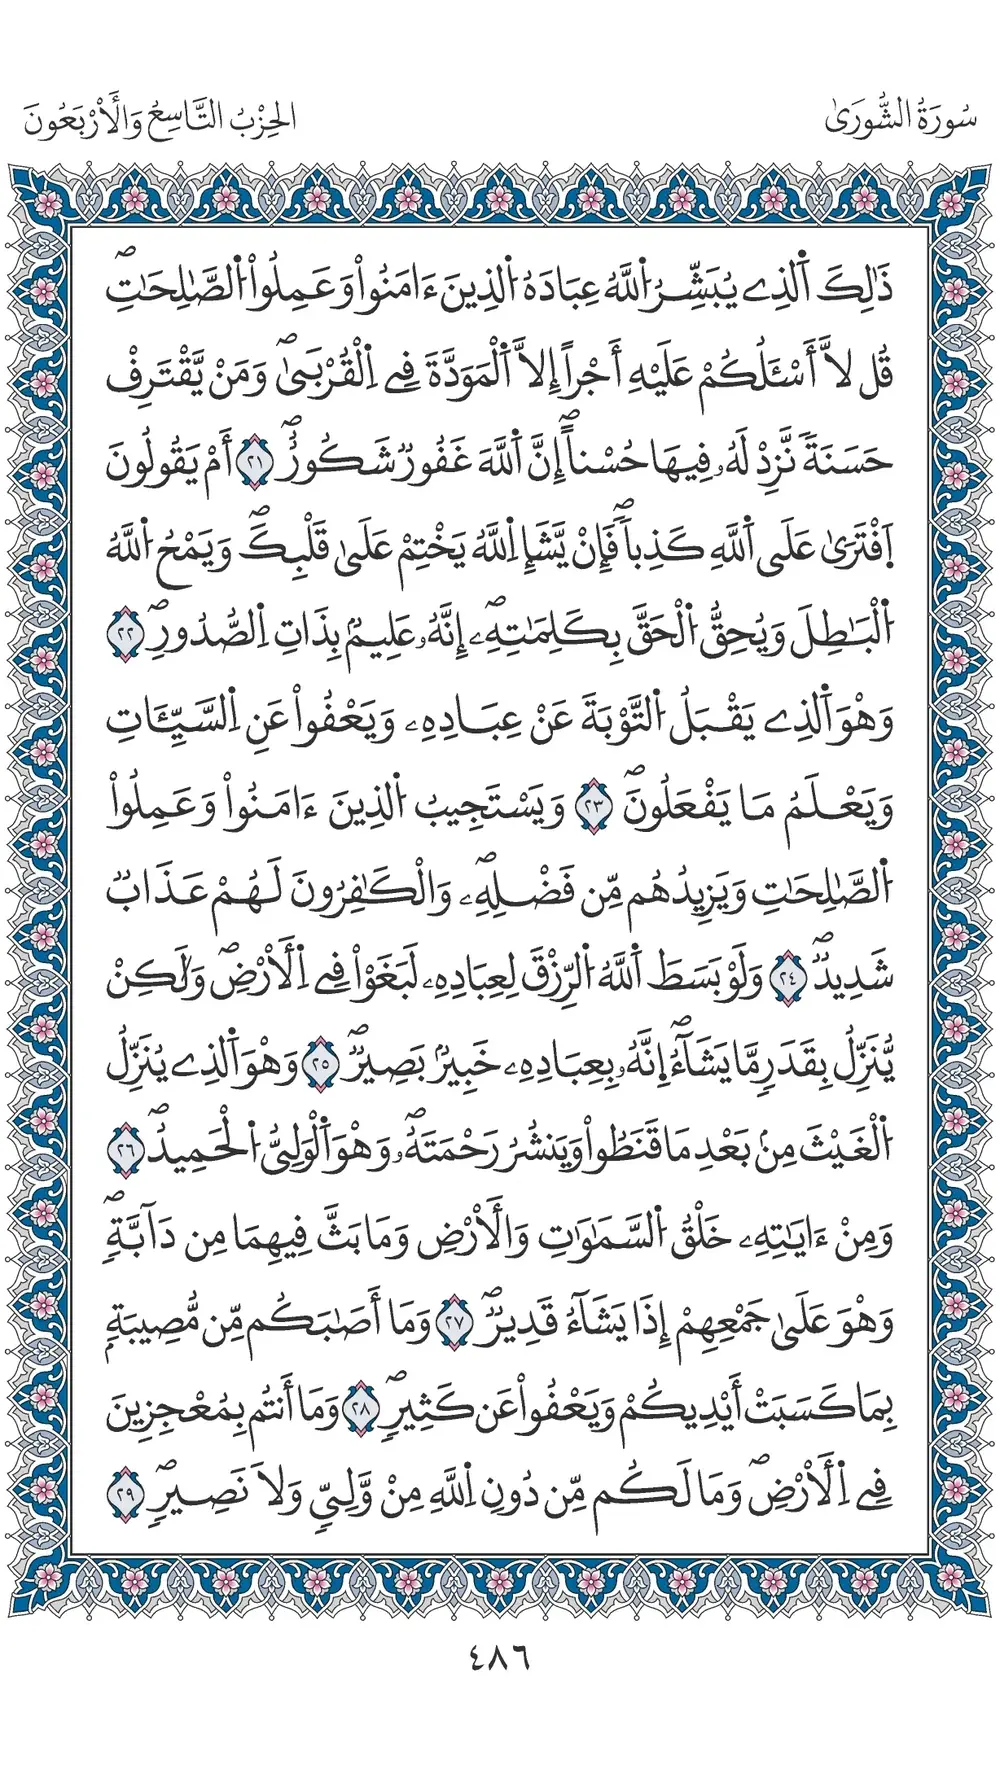 سُورَةُ الشُّورَىٰ
الحِزْبُ التَّاسِعُ وَالَارْبَعُونَ
ذَٰلِكَ اَ۬لذِے يُبَشِّرُ اُ۬للَّهُ عِبَادَهُ اُ۬لذِينَ ءَامَنُواْ وَعَمِلُواْ اُ۬لصَّٰلِحَٰتِۖ
قُل لَّآ أَسْـَٔلُكُمْ عَلَيْهِ أَجْراً إِلَّا اَ۬لْمَوَدَّةَ فِے اِ۬لْقُرْبَىٰۖ وَمَنْ يَّقْتَرِفْ
حَسَنَةٗ نَّزِدْ لَهُۥ فِيهَا حُسْناًۖ إِنَّ اَ۬للَّهَ غَفُورٞ شَكُورٌۖ ٢١ أَمْ يَقُولُونَ
اَ۪فْتَرَىٰ عَلَى اَ۬للَّهِ كَذِباٗۖ فَإِنْ يَّشَإِ اِ۬للَّهُ يَخْتِمْ عَلَىٰ قَلْبِكَۖ وَيَمْحُ اُ۬للَّهُ
اُ۬لْبَٰطِلَ وَيُحِقُّ اُ۬لْحَقَّ بِكَلِمَٰتِهِۦٓۖ إِنَّهُۥ عَلِيمُۢ بِذَاتِ اِ۬لصُّدُورِۖ ٢٢
وَهْوَ اَ۬لذِے يَقْبَلُ اُ۬لتَّوْبَةَ عَنْ عِبَادِهِۦ وَيَعْفُواْ عَنِ اِ۬لسَّيِّـَٔاتِ
وَيَعْلَمُ مَا يَفْعَلُونَۖ ٢٣ وَيَسْتَجِيبُ اُ۬لذِينَ ءَامَنُواْ وَعَمِلُواْ
اُ۬لصَّٰلِحَٰتِ وَيَزِيدُهُم مِّن فَضْلِهِۦۖ وَالْكَٰفِرُونَ لَهُمْ عَذَابٞ
شَدِيدٞۖ ٢٤ وَلَوْ بَسَطَ اَ۬للَّهُ اُ۬لرِّزْقَ لِعِبَادِهِۦ لَبَغَوْاْ فِے اِ۬لَارْضِۖ وَلَٰكِنْ
يُّنَزِّلُ بِقَدَرٖ مَّا يَشَآءُۖ إِنَّهُۥ بِعِبَادِهِۦ خَبِيرُۢ بَصِيرٞۖ ٢٥ وَهْوَ اَ۬لذِے يُنَزِّلُ
اُ۬لْغَيْثَ مِنۢ بَعْدِ مَا قَنَطُواْ وَيَنشُرُ رَحْمَتَهُۥۖ وَهْوَ اَ۬لْوَلِيُّ اُ۬لْحَمِيدُۖ ٢٦
وَمِنْ ءَايَٰتِهِۦ خَلْقُ اُ۬لسَّمَٰوَٰتِ وَالَارْضِ وَمَا بَثَّ فِيهِمَا مِن دَآبَّةٖۖ
وَهْوَ عَلَىٰ جَمْعِهِمْ إِذَا يَشَآءُ قَدِيرٞۖ ٢٧ وَمَا أَصَٰبَكُم مِّن مُّصِيبَةِۢ
بِمَا كَسَبَتْ أَيْدِيكُمْ وَيَعْفُواْ عَن كَثِيرٖۖ ٢٨ وَمَا أَنتُم بِمُعْجِزِينَ
فِے اِ۬لَارْضِۖ وَمَا لَكُم مِّن دُونِ اِ۬للَّهِ مِنْ وَّلِيّٖ وَلَا نَصِيرٖۖ ٢٩
٤٨٦